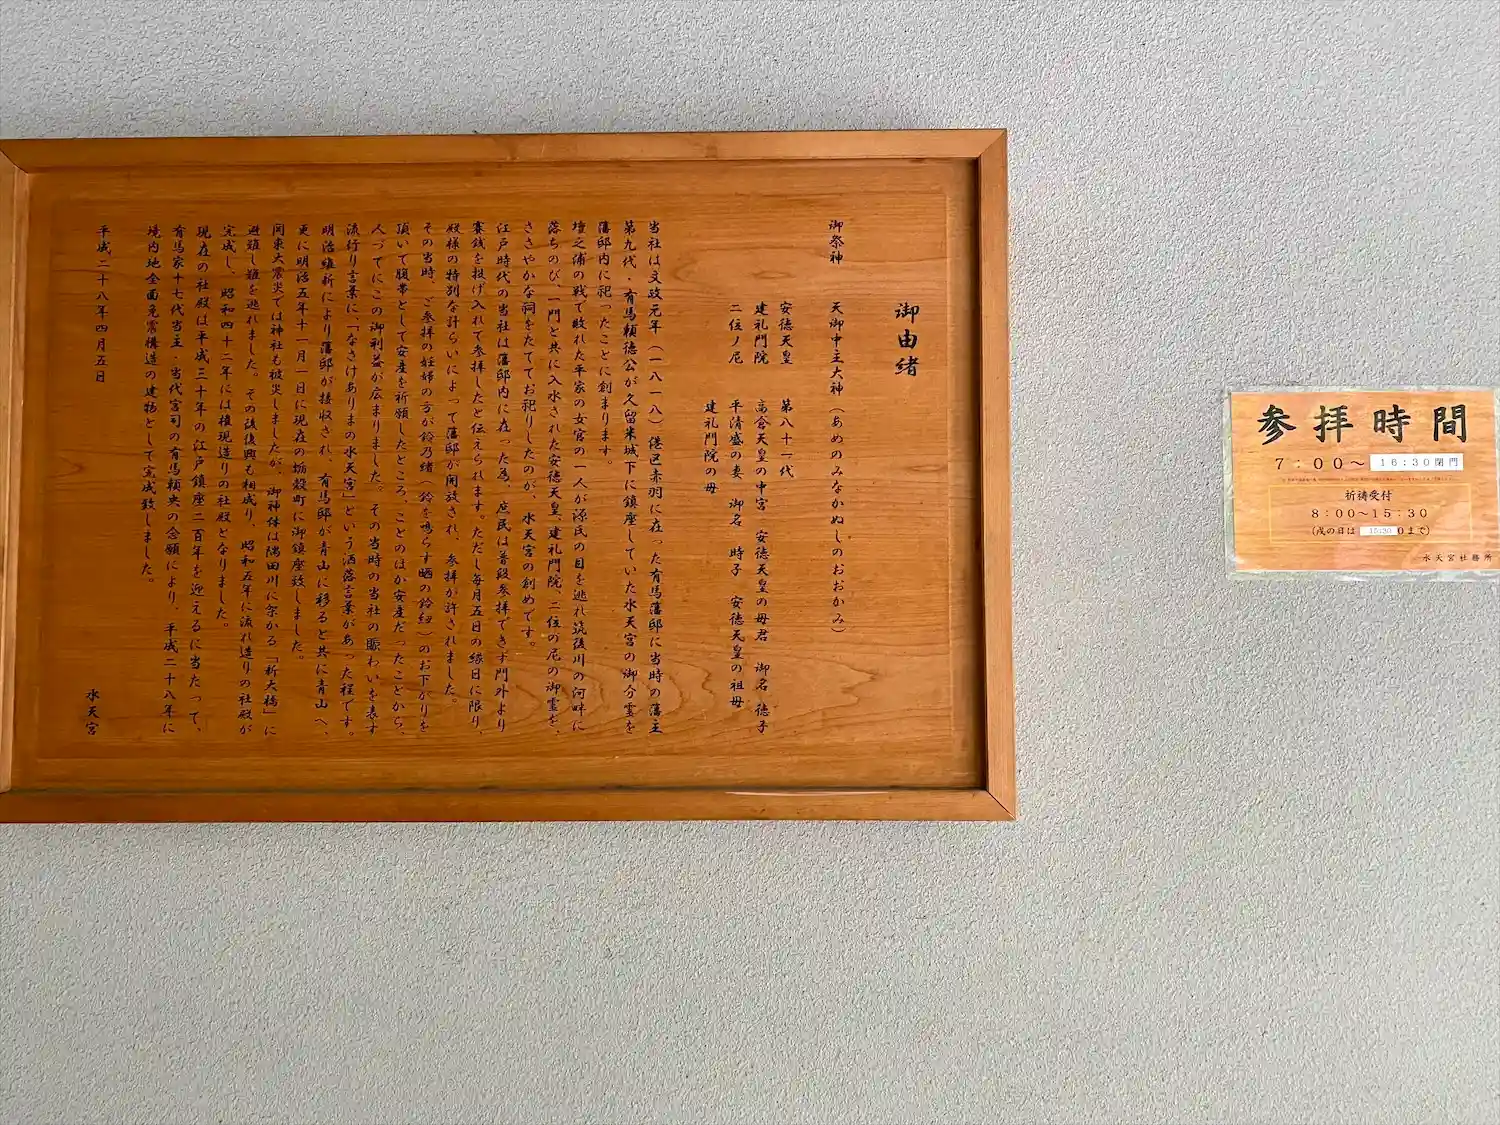 御由緒
御祭神　天御中主大神（あめのみなかぬしのおおかみ）
安徳天皇　第八十一代
建礼門院　高倉天皇の中宮　安徳天皇の母君　御名　徳子
二位ノ尼　平清盛の妻　御名　時子　安徳天皇の祖母
建礼門院の母
当社は文政元年（一八一八）港区赤羽に在った有馬藩邸に当時の藩主
第九代・有馬頼徳公が久留米城下に鎮座していた水天宮の御分霊を
藩邸内に祀ったことに創まります。
壇之浦の戦で敗れた平家の女官の一人が源氏の目を逃れ筑後川の河畔に
落ちのび、一門と共に入水された安徳天皇、建礼門院、二位の尼の御霊を、
ささやかな祠をたててお祀りしたのが、水天宮の創めです。
江戸時代の当社は藩邸内に在った為、庶民は普段参拝できず門外より
賽銭を投げ入れて参拝したと伝えられます。ただし毎月五日の縁日に限り、
殿様の特別な計らいによって藩邸が開放され、参拝が許されました。
その当時、ご参拝の妊婦の方が鈴乃緒（鈴を鳴らす晒の鈴紐）のお下がりを
頂いて腹帯として安産を祈願したところ、ことのほか安産だったことから、
人づてにこの御利益が広まりました。その当時の当社の賑わいを表す
流行り言葉に、「なさけありまの水天宮」という洒落言葉があった程です。
明治維新により藩邸が接収され、有馬邸が青山に移ると共に青山へ、
更に明治五年十一月一日に現在の蛎殻町に御鎮座致しました。
関東大震災では神社も被災しましたが、御神体は隅田川に架かる「新大橋」に
避難し難を逃れました。その後復興も相成り、昭和五年に流れ造りの社殿が
完成し、昭和四十二年には権現造りの社殿となりました。
現在の社殿は平成三十年の江戸鎮座二百年を迎えるに当たって、
有馬家十七代当主・当代宮司の有馬頼央の念願により、平成二十八年に
境内地全面免震構造の建物として完成致しました。
平成二十八年四月五日
水天宮
参拝時間
7：00～16：30閉門
祈祷受付
8：00～15：30
（戌の日は 15:30 まで）
水天宮社務所